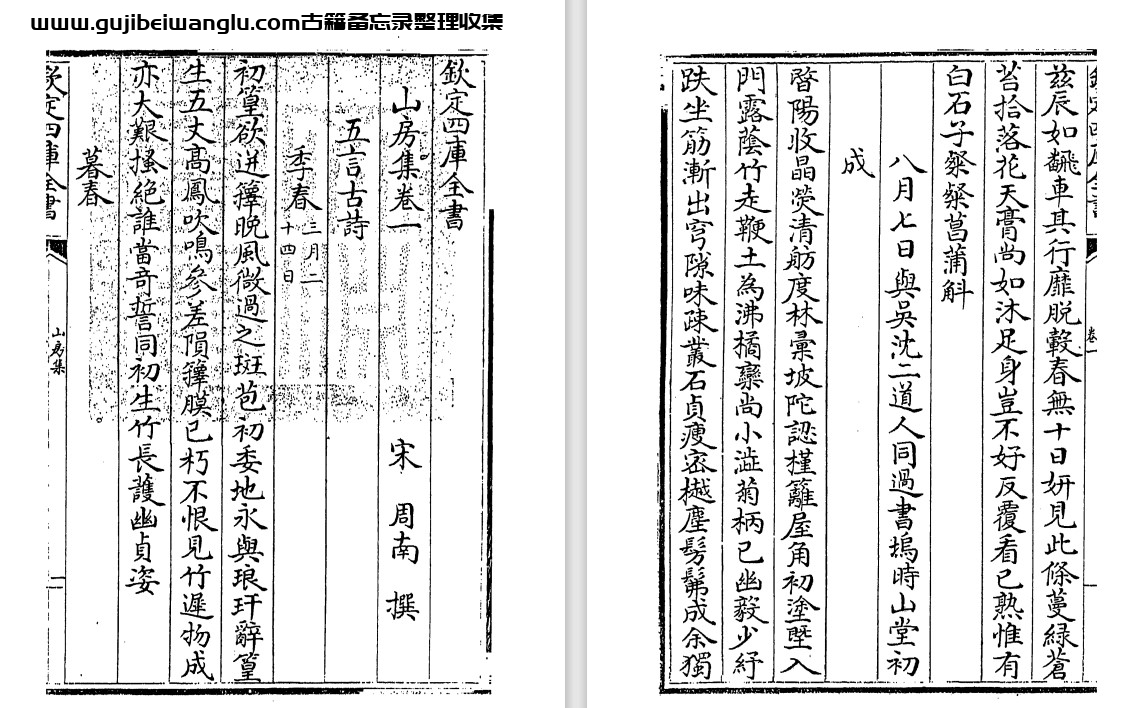 www.gujibeiwanglu.com古籍备忘录整理收集
欽定四庫全書
山房集卷一 宋 周南 撰
五言古詩
季春 三月二十四日
初篁欲迸籜晚風微過之斑苞初委地永與琅玕辭篁
生五丈高鳳吹鳴參差隕籜膜已朽不恨見竹遲物成
亦大艱搔絕誰當奇誓同初生竹長護幽貞姿
暮春
欽定四庫全書 山房集 一
茲辰如飜車其行靡脫轂春無十日妍見此條蔓綠蒼
苔拾落花天膏尚如沐足身豈不好反覆看已熟惟有
白石子粲粲菖蒲斛
八月七日與吳沈二道人同過書塢時山堂初
成
陽收晶熒清舫度林彚坡陀認槿籬屋角初塗墍入
門露蔭竹走鞭土為沸橘欒尚小澁菊柄已幽毅少紓
趺坐筋漸出穹隙味疎叢石貞瘦宻樾塵髣髴成余獨